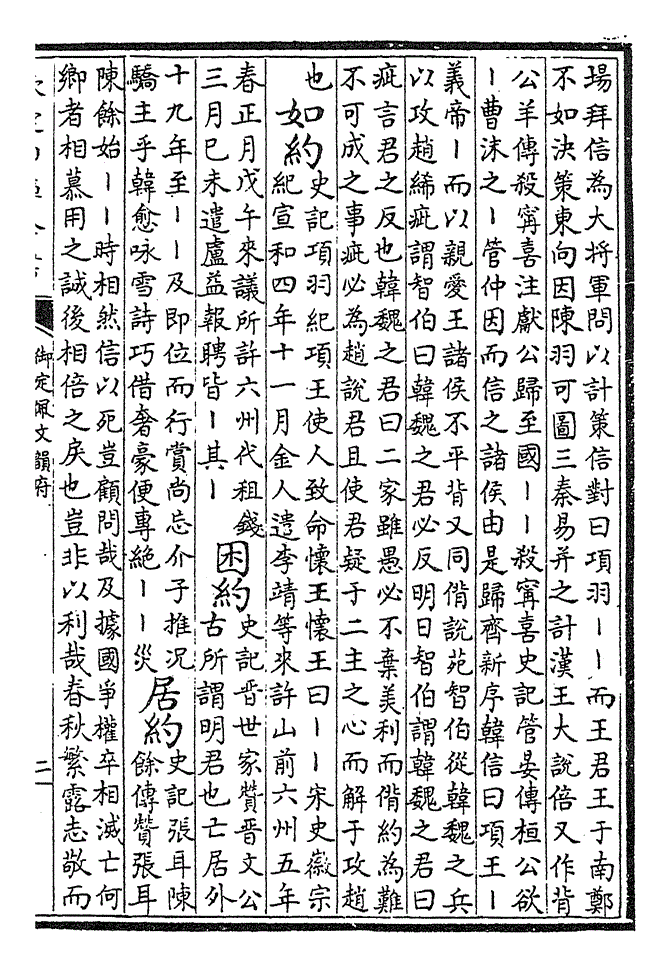 場拜信為大將軍問以計策信對曰項羽丨丨而王君王于南鄭
不如決策東向因陳羽可圖三秦易并之計漢王大說倍又作背
公羊傳殺甯喜注獻公歸至國丨丨殺甯喜史記管晏傳桓公欲
丨曹沫之丨管仲因而信之諸侯由是歸齊新序韓信曰項王丨
義帝丨而以親愛王諸侯不平背又同偝說苑智伯從韓魏之兵
以攻趙絺疵謂智伯曰韓魏之君必反明日智伯謂韓魏之君曰
疵言君之反也韓魏之君曰二家雖愚必不棄美利而偝約為難
不可成之事疵必為趙說君且使君疑于二主之心而解于攻趙
也
如約
史記項羽紀項王使人致命懷王懷王曰丨丨宋史徽宗
紀宣和四年十一月金人遣李靖等來許山前六州五年
春正月戊午來議所許六州代租錢
三月已未遣盧益報聘皆丨其丨
困約
史記晉世家贊晉文公
古所謂明君也亡居外
十九年至丨丨及即位而行賞尚忘介子推況
驕主乎韓愈咏雪詩巧借奢豪便專絕丨丨災
居約
史記張耳陳
餘傳贊張耳
陳餘始丨丨時相然信以死豈顧問哉及據國爭權卒相滅亡何
鄉者相慕用之誠後相倍之戾也豈非以利哉春秋繁露志敬而
御定佩文韻府
二